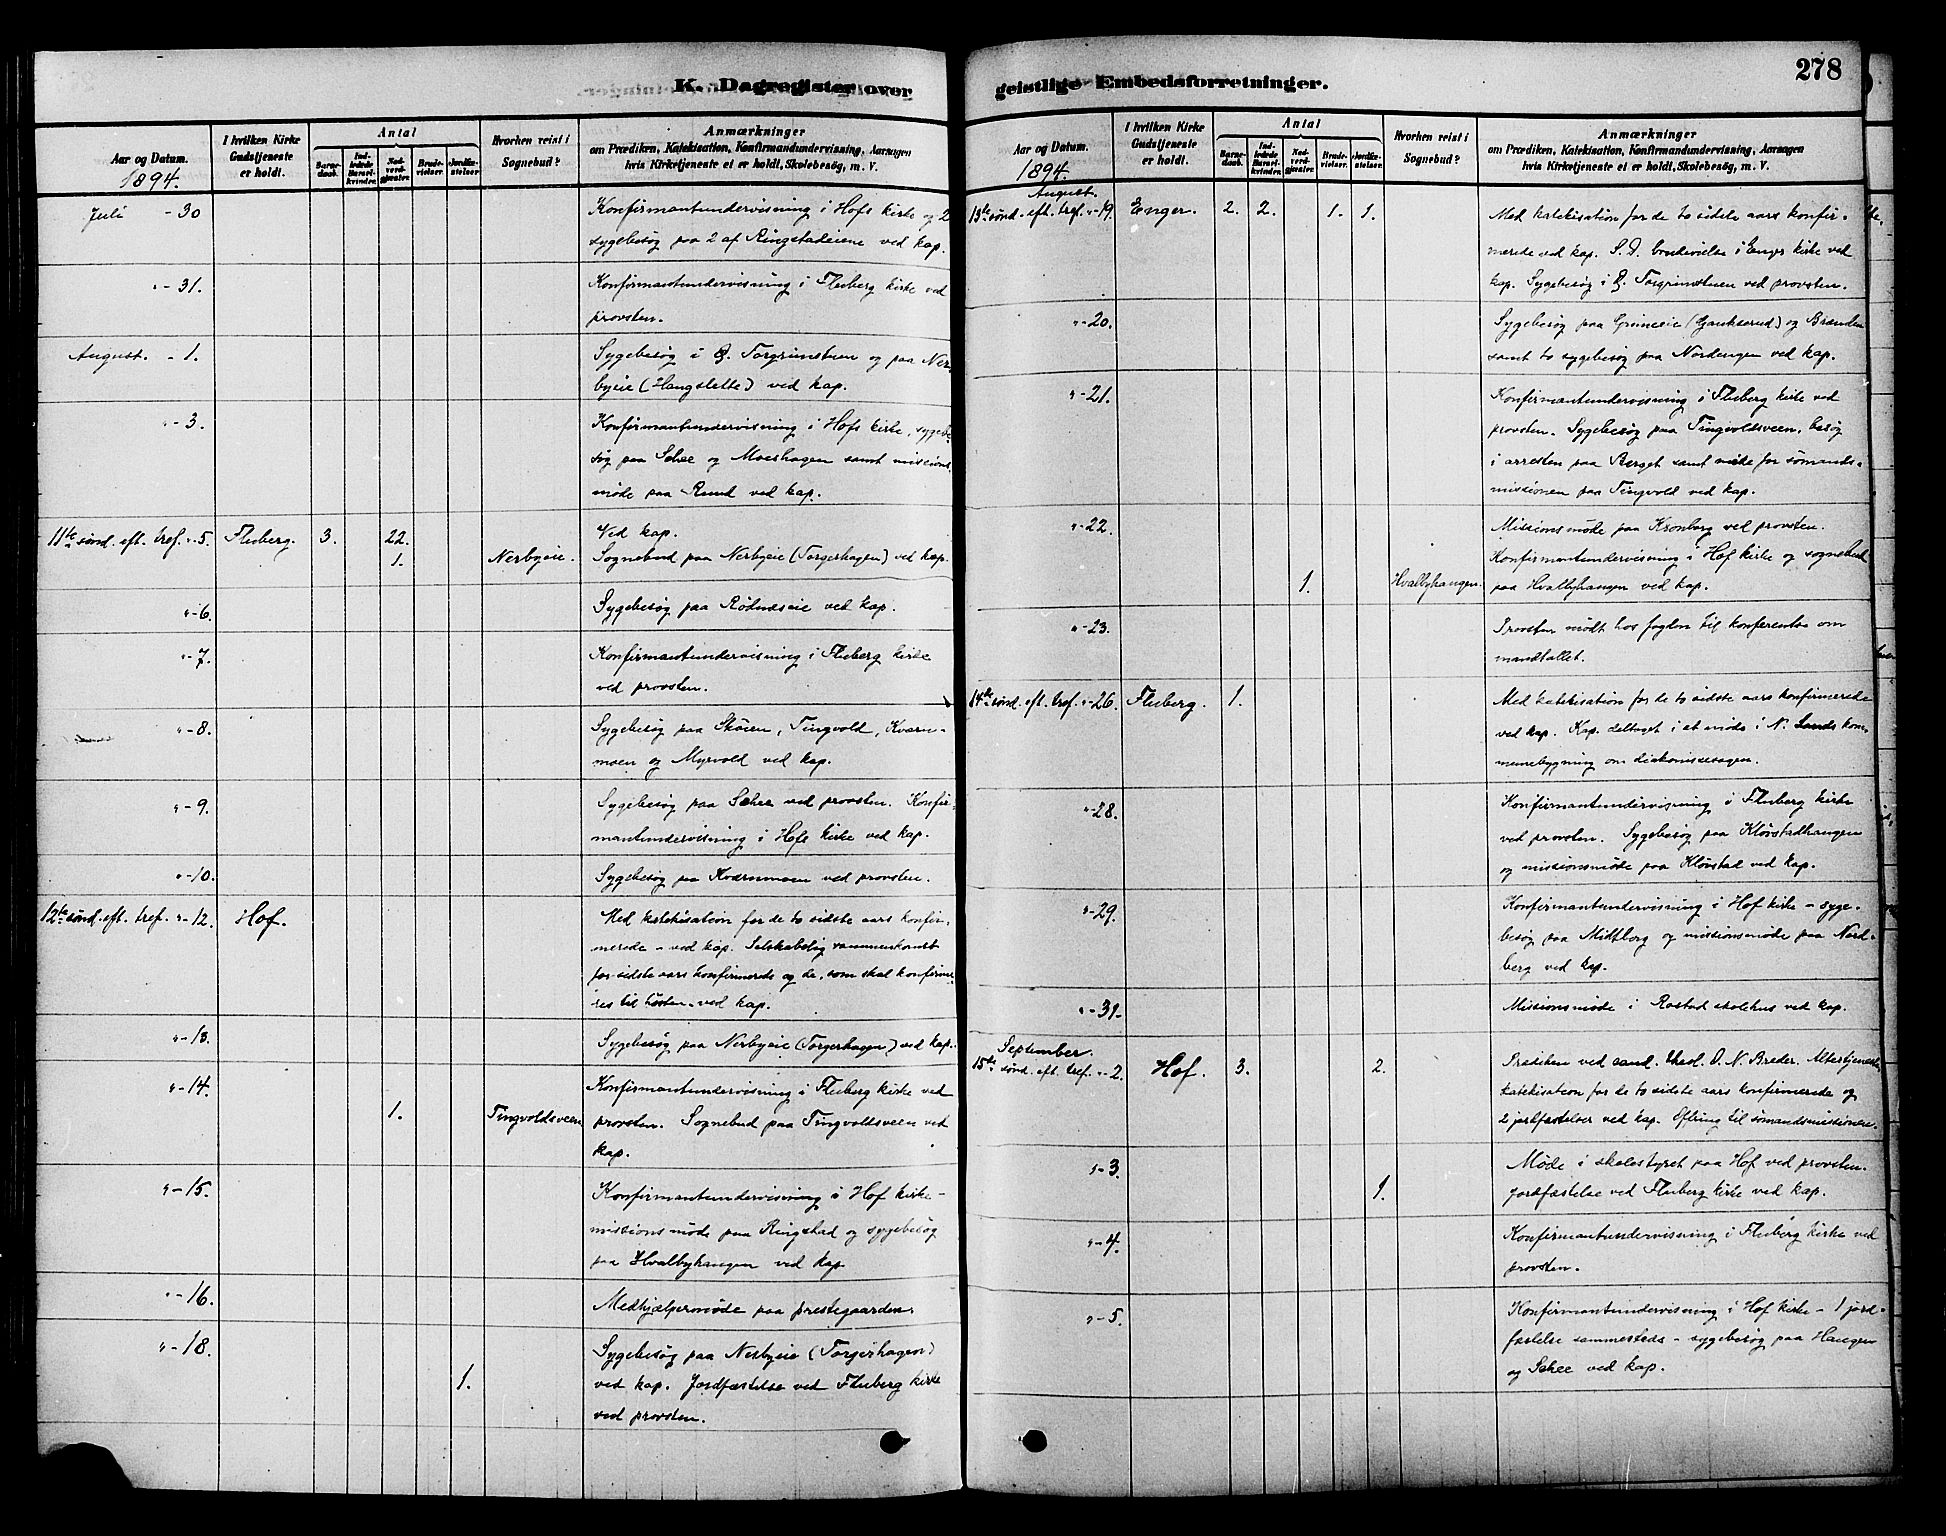 K. Dagregister over
Aar og Datum.
1894.
I hvilken Kirke
Gudstjeneste
er holdt.
Antal
Barne-
daab.
Ind-
ledede
Barsel-
kvinder.
Nad-
verd-
gjester.
Brude-
vielser.
Jordfæ-
stelser.
Hvorhen reist i
Sognebud?
Anmærkninger
om Prædiken, Katekisation, Konfirmandundervisning, Aarsagen
hvis Kirketjeneste ei er holdt, Skolebesøg, m. V.
Juli - 30
Konfirmantundervisning i Hofs kirke og 2
sygebesøg paa 2 af Ringstadeiene ved kap.
" - 31.
Konfirmantundervisning i Fluberg kirke ved
provsten.
August. - 1.
Sygebesøg i Ø. Torgrimstuen og paa Ner-
byeie (Haugslette) ved kap.
" - 3.
Konfirmantundervisning i Hofs kirke, sygebe
søg paa Schee og Moeshagen samt missions
møde paa Rund ved kap.
11te sønd. eft. tref. " - 5. Fluberg. 3. 22. Ved kap.
1. Nerbyeie. Sognebud paa Nerbyeie (Torgerhagen) ved kap.
" - 6.
Sygebesøg paa Rødnæseie ved kap.
" - 7.
Konfirmantundervisning i Fluberg kirke
ved provsten.
" - 8.
Sygebesøg paa Skøien, Tingvold, Kværn-
moen og Myrvold ved kap.
" - 9.
Sygebesøg paa Schee ved provsten. Konfir-
mantundervisning i Hofs kirke ved kap.
" - 10.
Sygebesøg paa Kværnmoen ved provsten.
12te sønd. eft. tref. " - 12. Hof.
Med katekisation for de to sidste aars konfir-
merede - ved kap. Selskabelig sammenkomst
for sidste aars konfirmerede og de, som skal konfirme-
res til høsten - ved kap.
" - 13.
Sygebesøg paa Nerbyeie (Torgerhagen) ved kap.
" - 14.
Konfirmantundervisning i Fluberg kirke ved
1. Tingvoldsveen. provsten. Sognebud paa Tingvoldsveen ved
kap.
" - 15.
Konfirmantundervisning i Hof kirke -
missionsmøde paa Ringstad og sygebesøg
paa Hvalbyhaugen ved kap
" - 16.
Medhjælpermøde paa prestegaarden.
" - 18.
Sygebesøg paa Nerbyeie (Torgerhagen)
1. ved kap. Jordfæstelse ved Fluberg kirke
ved provsten.
geistlige Embedsforretninger.
278
Aar og Datum.
1894.
I hvilken Kirke
Gudstjeneste
er holdt.
Antal
Barne-
daab.
Ind-
ledede
Barsel-
kvinder.
Nad-
verd-
gjester.
Brude-
vielser.
Jordfæ-
stelser.
Hvorhen reist i
Sognebud?
Anmærkninger
om Prædiken, Katekisation, Konfirmandundervisning, Aarsagen
hvis Kirketjeneste ei er holdt, Skolebesøg, m. V.
August.
13te sønd. eft. tref. " - 19. Enger. 2. 2. 1. 1. Med katekisation for de to sidste aars konfir-
merede ved kap. S. D. brudevielse i Enger kirke ved
kap. Sygebesøg i Ø. Torgrimstuen ved provsten.
" - 20.
Sygebesøg paa (Gaukerud) og Brænden
samt to sygebesøg paa Nordengen ved kap.
" - 21.
Konfirmantundervisning i Fluberg kirke ved
provsten. Sygebesøg paa Tingvoldsveen, besøg
i arresten paa Berget samt møde for sømands-
missionen paa Tingvold ved kap.
" - 22.
Missionsmøde paa Kronborg ved provsten.
Konfirmantundervisning i Hof kirke og sognebud
1. Hvalbyhaugen. paa Hvalbyhaugen ved kap.
" - 23.
Provsten mødt hos fogden til konferentse om
mandtallet.
14de sønd. eft. tref. " - 26. Fluberg. 1. Med katekisation for de to sidste aars konfirmerede
ved kap. Kap. deltaget i et møde i N. Lands kom-
munebygning om diakonissesagen.
" - 28.
Konfirmantundervisning i Fluberg kirke
ved provsten. Sygebesøg paa Kløvstadhaugen
og missionsmøde paa Kløvstad ved kap.
" - 29.
Konfirmantundervisning i Hof kirke - syge-
besøg paa Midtborg og missionsmøde paa Nord-
berg ved kap.
" - 31.
Missionsmøde i Rostad skolehus ved kap.
September.
15de sønd. eft. tref. " - 2. Hof. 3. 2. Prediken ved cand. theol. O. N. Breder. Altertjeneste,
katekisation for de to sidste aars konfirmerede og
2 jordfæstelser ved kap. Ofring til sømandsmissionen.
" - 3.
Møde i skolestyret paa Hof ved provsten.
1. Jordfæstelse ved Fluberg kirke ved kap.
" - 4.
Konfirmantundervisning i Fluberg kirke ved
provsten.
" - 5.
Konfirmantundervisning i Hof kirke - 1 jord-
fæstelse sammesteds - sygebesøg paa Haugen
og Schee ved kap.